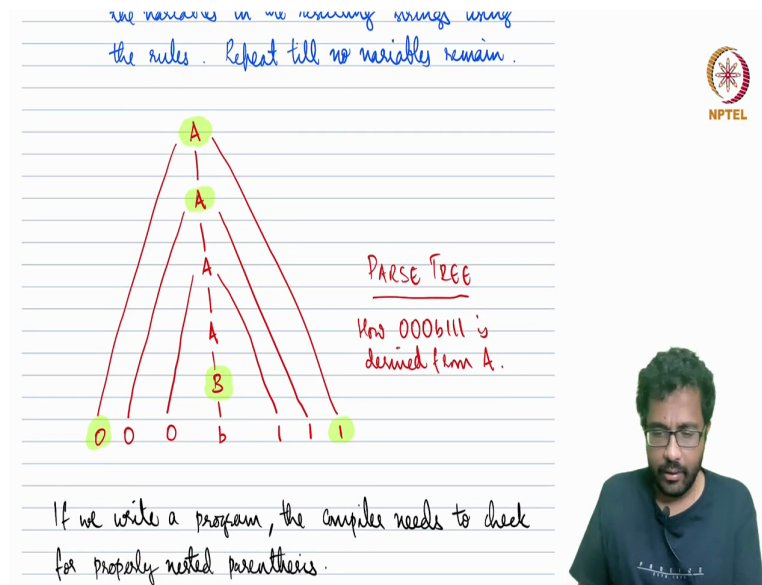 the variables in the resulting strings using
the rules. Repeat till no variables remain.
NPTEL
A
A
A
PARSE TREE
How 000b111 is
A
derived from A.
B
0 0 0 b 1 1 1
If we write a program, the compiler needs to check
for properly nested parenthesis.